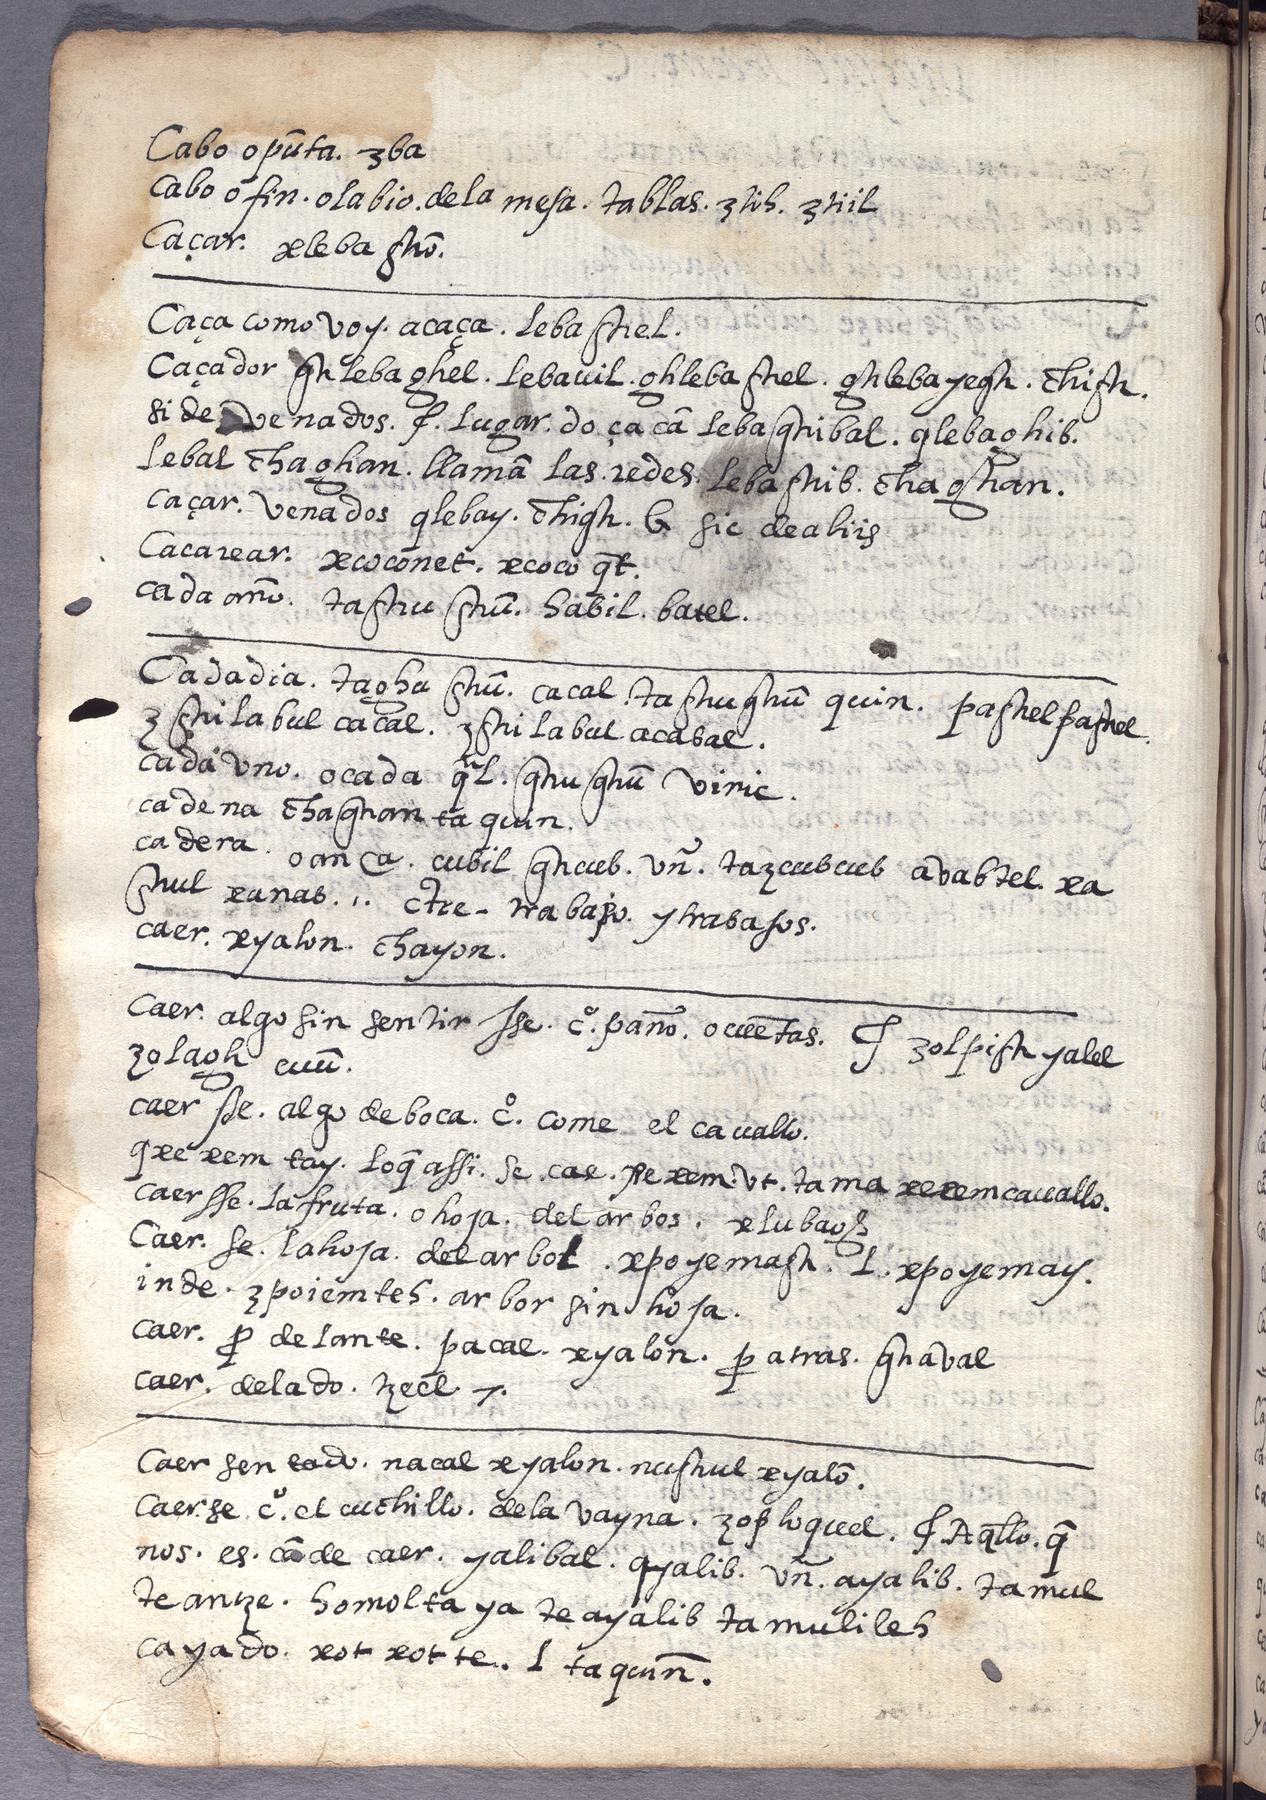 Cabo o pũta. ʒba
Cabo o fin. o labio. de la mesa. tablas. ʒtih. ʒtiil
Caçar. xleba ghõ.
Caça como voy. a caça. lebaghel.
Caçador ghlebaghel. lebauil. ghlebaghel. ghlebayegh. chigh.
si de venados. lugar. do çacã lebaghibal. qlebaghib.
lebal chaghan. llamã las. redes. lebaghib. chaghan.
caçar. venados qlebay. chigh. & sic de aliis
Cacarear. xcoconet. xcoco q̃t.
cada año. taghu ghũ. habil. batel.
Cada dia. taghu ghũ. cacal. taghughũ quin. paghel paghel.
ʒghilabul cacal. ʒghilabul acabal.
cada vno. o cada q̃l. ghughũ vinic.
cadena chaghan taquin.
cadera. o anca. cubil ghcub. vñ. taʒcubcub avabtel. xa
ghul xanab. trabajo. y trabajos.
caer. xyalon. chayon.
Caer. algo sin sentir sse. c.º paño. o cuẽtas. ʒolpigh yalel
ʒolagh cuũ.
caer sse. algo de boca. c.º come el cauallo.
qxexem tay. lo q̃ assi. se cae. xexem. vt. tama xexemcauallo.
caersse. la fruta. o hoja. del arbos. xlubagh
Caer. se. la hoja. del arbol. xpoyemagh. l. xpoyemay.
inde. ʒpoiemteh. arbor sin hoja.
caer. p̱ delante. pacal. xyalon. p̱ atras. ghaval
caer. de lado. tzecl
Caer sentado. nacal xyalon. nughul xyalõ.
Caer.se c.º el cuchillo. de la vayna. ʒoploquel. Aq̃llo. q̃
nos. es. cãde caer. yalibal. qyalib. vñ. ayalib. tamul
te antze. homol ta ya te ayalib tamulileh
cayado. xot xot te. l taquiñ.